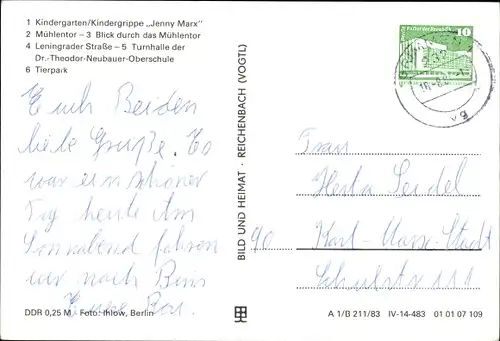 1 Kindergarten/Kindergrippe „Jenny Marx"
2 Mühlentor – 3 Blick durch das Mühlentor
4 Leningrader Straße – 5 Turnhalle der
Dr.-Theodor-Neubauer-Oberschule
6 Tierpark
Euch Beiden
liebe Grüße. Es
war ein schöner
Tag heute Am
Sonnabend fahren
wir nach
Eure
DDR 0,25 M Foto: Ihlow, Berlin
BILD UND HEIMAT · REICHENBACH (VOGTL)
10
Frau
Herta Seidel
90 Karl-Marx-Stadt
Schulstr 111
A 1/B 211/83 IV-14-483 01 01 07 109